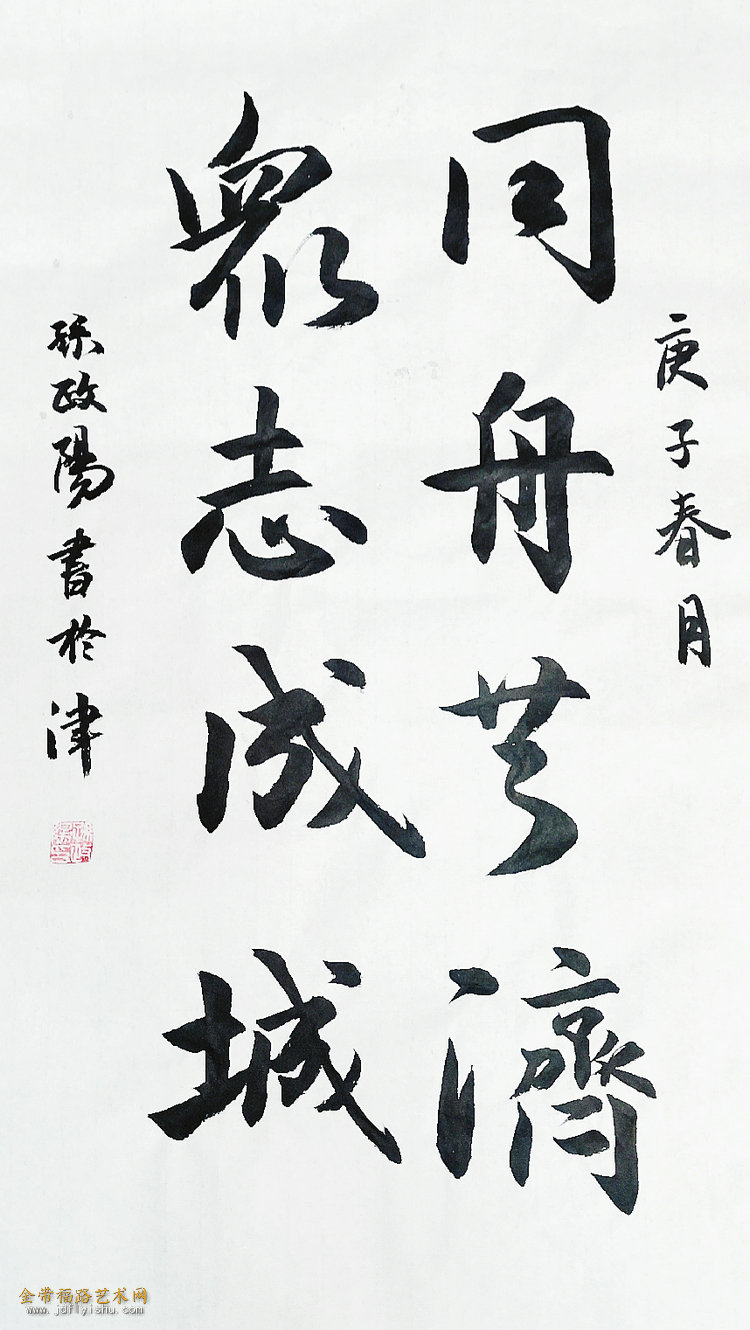 庚子春月
同舟共濟
眾志成城
孫政陽書於津
金带福路艺术网
www.jdflyishu.com